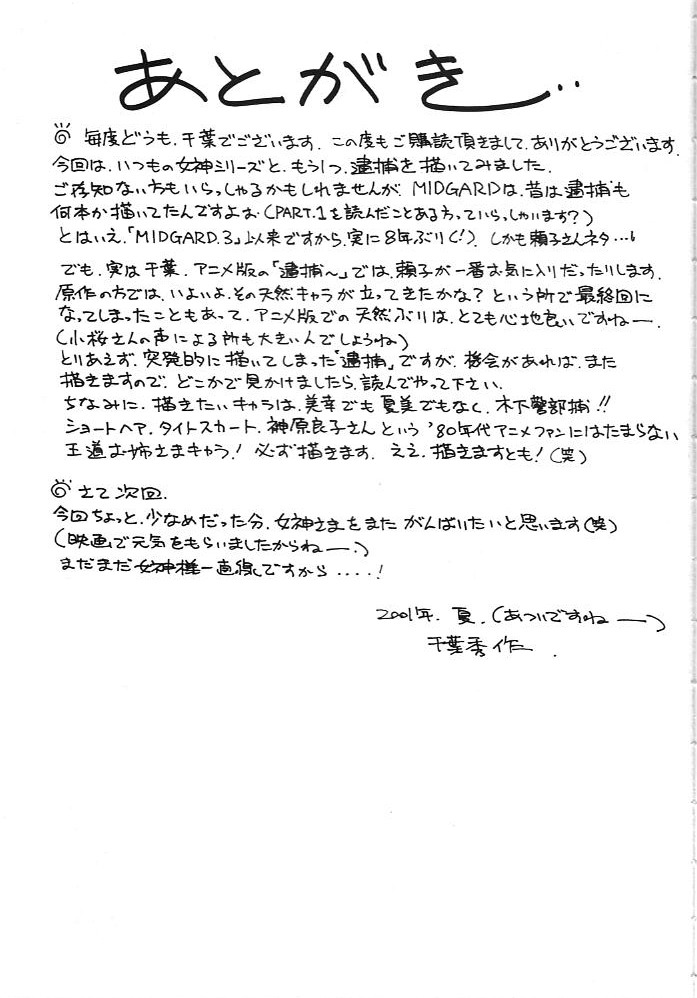 あとがき..
◎ 毎度どうも、千葉でございます。この度もご購読頂きまして、ありがとうございます。
今回は、いつもの女神シリーズと、もう1つ、逮捕を描いてみました。
ご存知ない方もいらっしゃるかもしれませんが、MIDGARDは、昔は逮捕も
何本か描いてたんですよね(PART.1を読んだことある方っていらっしゃいます?)
とはいえ、「MIDGARD.3」以来ですから、実に8年ぶり(!)、しかも頼子さんネタ…。
でも、実は千葉、アニメ版の「逮捕〜」では、頼子が一番お気に入りだったりします。
原作の方では、いよいよ、その天然キャラが立ってきたかな?という所で最終回に
なってしまったこともあって、アニメ版での天然ぶりは、とても心地良いですねー。
(小桜さんの声による所も大きいんでしょうね)
とりあえず、突発的に描いてしまった「逮捕」ですが、機会があれば、また
描きますので、どこかで見かけましたら、読んでやって下さい。
ちなみに、描きたいキャラは、美幸でも夏美でもなく、木下警部補!!
ショートヘア、タイトスカート、神原良子さんという'80年代アニメファンにはたまらない
王道お姉さまキャラ! 必ず描きます。ええ、描きますとも!(笑)
◎ さて次回。
今回ちょっと、少なめだった分、女神さまをまた がんばりたいと思います(笑)
(映画で元気をもらいましたからねー。)
まだまだ女神様一直線ですから....!
2001年. 夏.(あついですねー)
千葉秀作.